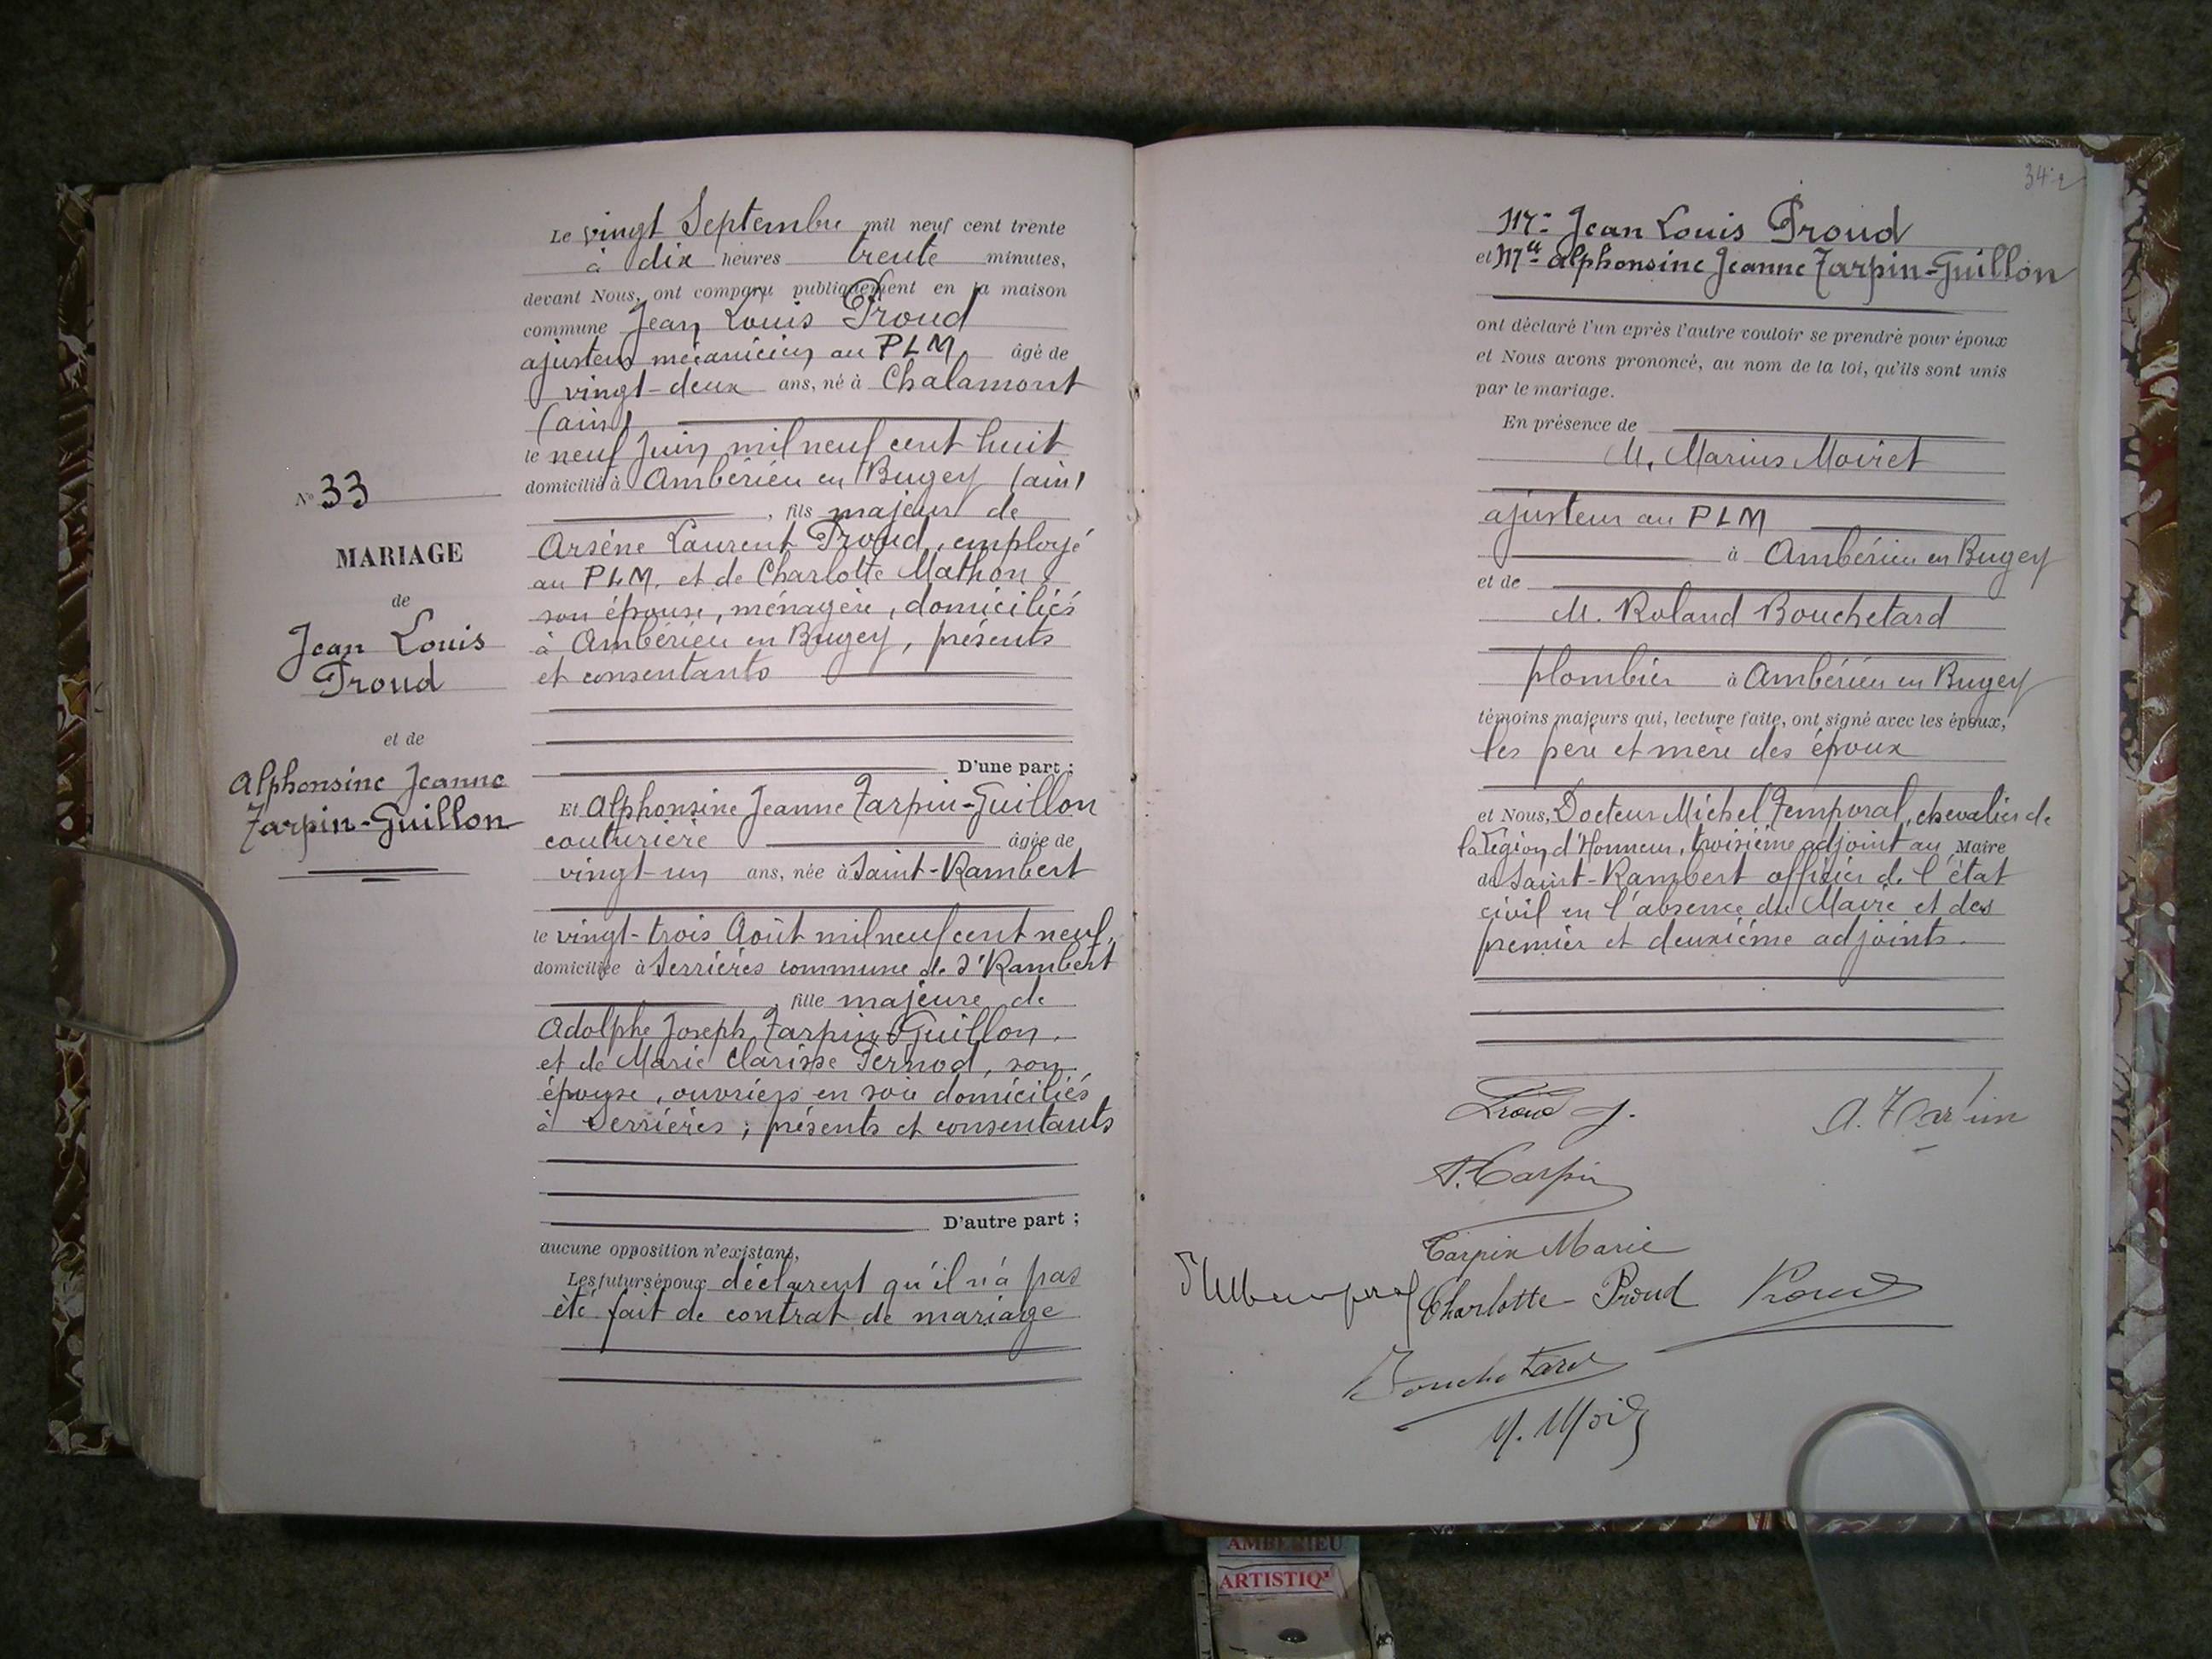 Le vingt Septembre mil neuf cent trente
à dix heures trente minutes,
devant Nous, ont comparu publiquement en la maison
commune Jean Louis Proud
ajusteur mécanicien au PLM âgé de
vingt-deux ans, né à Chalamont
(ain)
le neuf Juin mil neuf cent huit
domicilié à Ambérieu en Bugey (ain)
, fils majeur de
Arsène Laurent Proud, employé
au PLM. et de Charlotte Mathon,
son épouse, ménagère, domiciliés
à Ambérieu en Bugey, présents
et consentants
D'une part ;
Et Alphonsine Jeanne Tarpin-Guillon
couturière âgée de
vingt-un ans, née à Saint-Rambert
le vingt-trois Août mil neuf cent neuf,
domiciliée à Serrières commune de St Rambert
, fille majeure de
Adolphe Joseph Tarpin-Guillon.
et de Marie Clarisse Pernod, son
épouse, ouvriers en soie domiciliés
à Serrières ; présents et consentants
D'autre part ;
aucune opposition n'existant,
Les futurs époux déclarent qu'il n'a pas
été fait de contrat de mariage
N° 33
MARIAGE
de
Jean Louis
Proud
et de
Alphonsine Jeanne
Tarpin-Guillon
342
Mr Jean Louis Proud
et Mlle Alphonsine Jeanne Tarpin-Guillon
ont déclaré l'un après l'autre vouloir se prendre pour époux
et Nous avons prononcé, au nom de la loi, qu'ils sont unis
par le mariage.
En présence de
M. Marius Moiret
ajusteur au PLM
à Ambérieu en Bugey
et de
M. Roland Bouchetard
plombier à Ambérieu en Bugey
témoins majeurs qui, lecture faite, ont signé avec les époux,
les père et mère des époux
et Nous, Docteur Michel Temporal, chevalier de
la Légion d'Honneur, troisième adjoint au Maire
de Saint-Rambert officier de l'état
civil en l'absence du Maire et des
premier et deuxième adjoints.
Proud J.
A. Tarpin
A. Tarpin
Tarpin Marie
Charlotte Proud
Proud
Bouchetard
AMBERIEU
ARTISTIQ